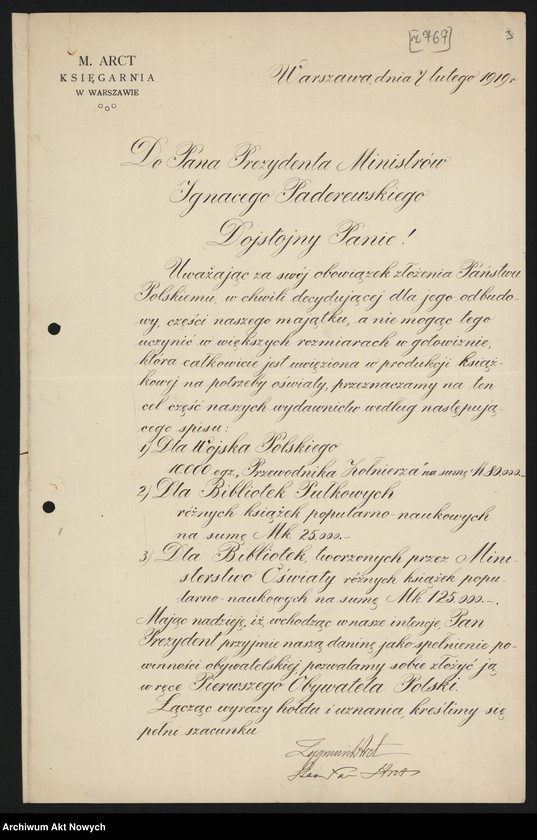 [N 769]
3
M. ARCT
KSIĘGARNIA
W WARSZAWIE
Warszawa, dnia 7 lutego 1919 r.
Do Pana Prezydenta Ministrów
Ignacego Paderewskiego
Dojstojny Panie!
Uważając za swój obowiązek złożenia Państwu
Polskiemu, w chwili decydującej dla jego odbudo-
wy, części naszego majątku, a nie mogąc tego
uczynić w większych rozmiarach w gotowiźnie,
która całkowicie jest uwięziona w produkcji książ-
kowej na potrzeby oświaty, przeznaczamy na ten
cel część naszych wydawnictw według następują-
cego spisu:
1) Dla Wojska Polskiego
10.000 egz. „Przewodnika Żołnierza" na sumę Mk 80.000.-
2) Dla Bibliotek Pułkowych
różnych książek popularno-naukowych
na sumę Mk. 25.000.-
3) Dla Bibliotek, tworzonych przez Mini-
sterstwo Oświaty różnych książek popu-
larno-naukowych na sumę Mk. 125.000.-.
Mając nadzieję, iż wchodząc w nasze intencje, Pan
Prezydent przyjmie naszą daninę jako spełnienie po-
winności obywatelskiej, pozwalamy sobie złożyć ją
w ręce Pierwszego Obywatela Polski.
Łącząc wyrazy hołdu i uznania, kreślimy się
pełni szacunku
Zygmunt Arct
Arct
Archiwum Akt Nowych